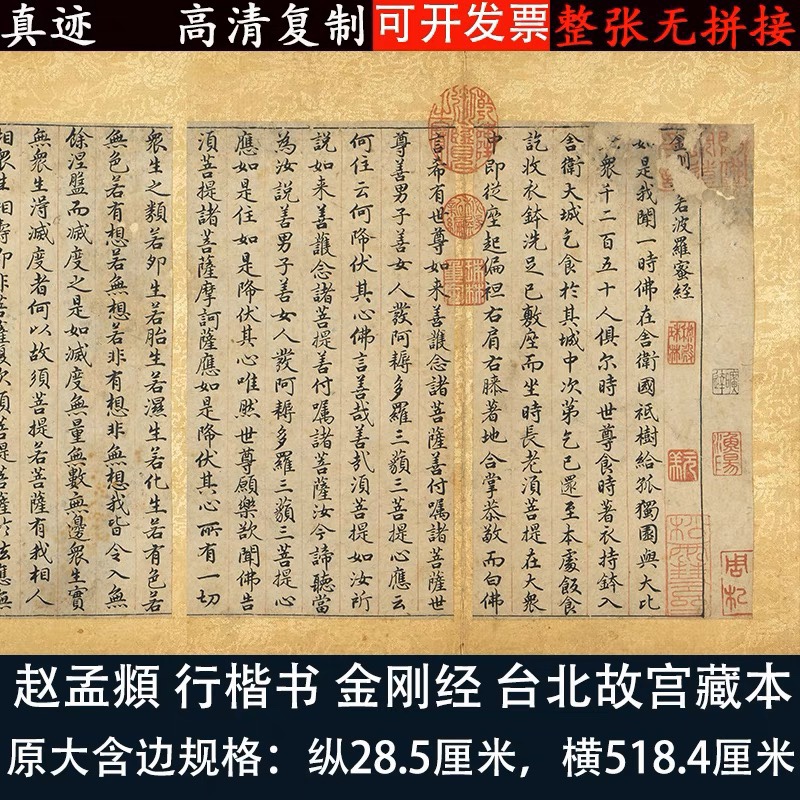 真迹 高清复制 可开发票 整张无拼接
若波羅蜜經
如是我聞一時佛在舍衛國祇樹給孤獨園與大比
衆千二百五十人俱尔時世尊食時著衣持鉢入
舍衛大城乞食於其城中次第乞已還至本處飯食
訖收衣鉢洗足已敷座而坐時長老湏菩提在大衆
中即從座起偏袒右肩右膝著地合掌恭敬而白佛
言希有世尊如来善護念諸菩薩善付嘱諸菩薩世
尊善男子善女人發阿耨多羅三藐三菩提心應云
何住云何降伏其心佛言善哉善哉湏菩提如汝所
說如来善護念諸菩提善付嘱諸菩薩汝今諦聽當
為汝說善男子善女人發阿耨多羅三藐三菩提心
應如是住如是降伏其心唯然世尊願樂欲聞佛告
湏菩提諸菩薩摩訶薩應如是降伏其心所有一切
衆生之類若卵生若胎生若濕生若化生若有色若
無色若有想若無想若非有想非無想我皆令入無
餘涅盤而滅度之是如滅度無量無數無邊衆生實
無衆生淂滅度者何以故湏菩提若菩薩有我相人
相衆生相壽即非菩薩復次湏菩提菩薩於法應無
赵孟頫 行楷书 金刚经 台北故宫藏本
原大含边规格：纵28.5厘米，横518.4厘米